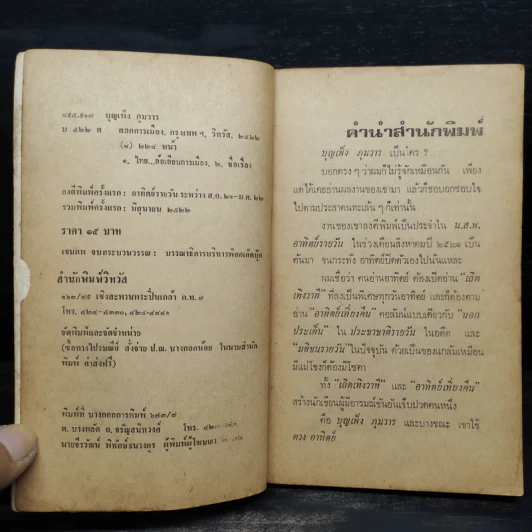 ๘๙๕.๙๑๗ บุญเพ็ง ภุมวาร
บ ๕๒๒ ต ตลกการเมือง. กรุงเทพ ฯ, วิทวัส, ๒๕๒๒
(๘) ๒๒๘ หน้า
๑. ไทย...ล้อเลียนการเมือง. ๒. ชื่อเรื่อง
ลงตีพิมพ์ครั้งแรก: อาทิตย์รายวัน ระหว่าง ส.ค. ๒๑-ม.ค. ๒๒
รวมพิมพ์ครั้งแรก: มิถุนายน ๒๕๒๒
ราคา ๑๕ บาท
เจนภพ จบกระบวนวรรณ : บรรณาธิการบริหารพ็อกเก็ตบุ๊ค
สำนักพิมพ์วิทวัส
เชิงสะพานพระปิ่นเกล้า ก.ท. ๗
โทร.
จัดพิมพ์และจัดจำหน่าย
(ซื้อทางไปรษณีย์ สั่งจ่าย ป.ณ. บางกอกน้อย ในนามสำนัก
พิมพ์ ค่าส่งฟรี)
พิมพ์ที่ บางกอกการพิมพ์ ๖๙๓/๗
ต. บางพลัด ถ. จรัญสนิทวงศ์ โทร.
นายจีรวัฒน์ พิทักษ์ธนางกูร ผู้พิมพ์ผู้โฆษณา
คำนำสำนักพิมพ์
บุญเพ็ง ภุมวาร เป็นใคร ?
บอกตรง ๆ ว่าผมก็ไม่รู้จักเหมือนกัน เพียง
แต่ได้เคยอ่านผลงานของเขามา แล้วก็ชอบอกชอบใจ
ไปตามประสาคนทะเล้น ๆ ก็เท่านั้น
งานของเขาลงตีพิมพ์เป็นประจำใน น.ส.พ.
อาทิตย์รายวัน ในช่วงเดือนสิงหาคมปี ๒๕๒๑ เป็น
ต้นมา จนกระทั่ง อาทิตย์ปิดตัวเองไปนั่นแหละ
ผมเชื่อว่า คนอ่านอาทิตย์ ต้องเปิดอ่าน "เถิด
เทิงวาที" ที่ลงเป็นพิเศษทุกวันอาทิตย์ และก็ต้องตาม
อ่าน "อาทิตย์เที่ยงคืน" คอลัมน์แบบเดียวกับ "นอก
ประเด็น" ใน ประชาชาติรายวัน ในอดีต และ
"มติชนรายวัน" ในปัจจุบัน ด้วยเป็นของแกล้มเหมือน
มีแม่โขงก็ต้องมีโซดา
ทั้ง "เถิดเทิงวาที" และ "อาทิตย์เที่ยงคืน"
สร้างนักเขียนผู้มีอารมณ์ขันอันเจ็บปวดคนหนึ่ง
คือ บุญเพ็ง ภุมวาร และบางขณะ เขาใช้
ดวง อาทิตย์